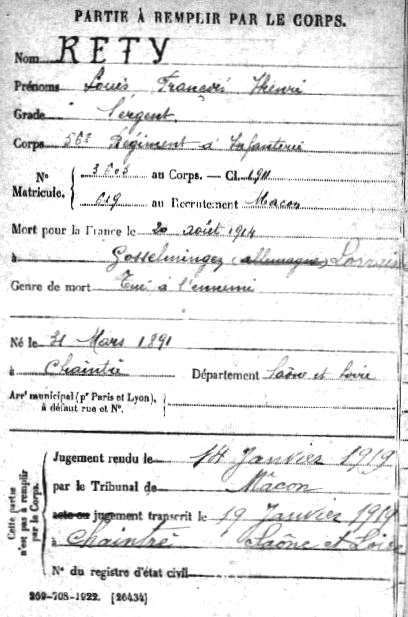 PARTIE À REMPLIR PAR LE CORPS.
Nom RETY
Prénoms Louis François Henri
Grade Sergent
Corps 56e Régiment d'Infanterie
N° Matricule. au Corps. — Cl. 1911
619 au Recrutement Macon
Mort pour la France le 20 août 1914
à Gosselmingen (allemagne) Lorraine
Genre de mort Tué à l'ennemi
Né le 31 Mars 1891
à Chaintré Département Saône et Loire
Arr' municipal (p' Paris et Lyon), à défaut rue et N°.
Cette partie n'est pas à remplir par le Corps.
Jugement rendu le 14 Janvier 1919
par le Tribunal de Mâcon
acte ou jugement transcrit le 19 Janvier 1919
à Chaintré Saône et Loire
N° du registre d'état civil
269-708-1922. [26434]